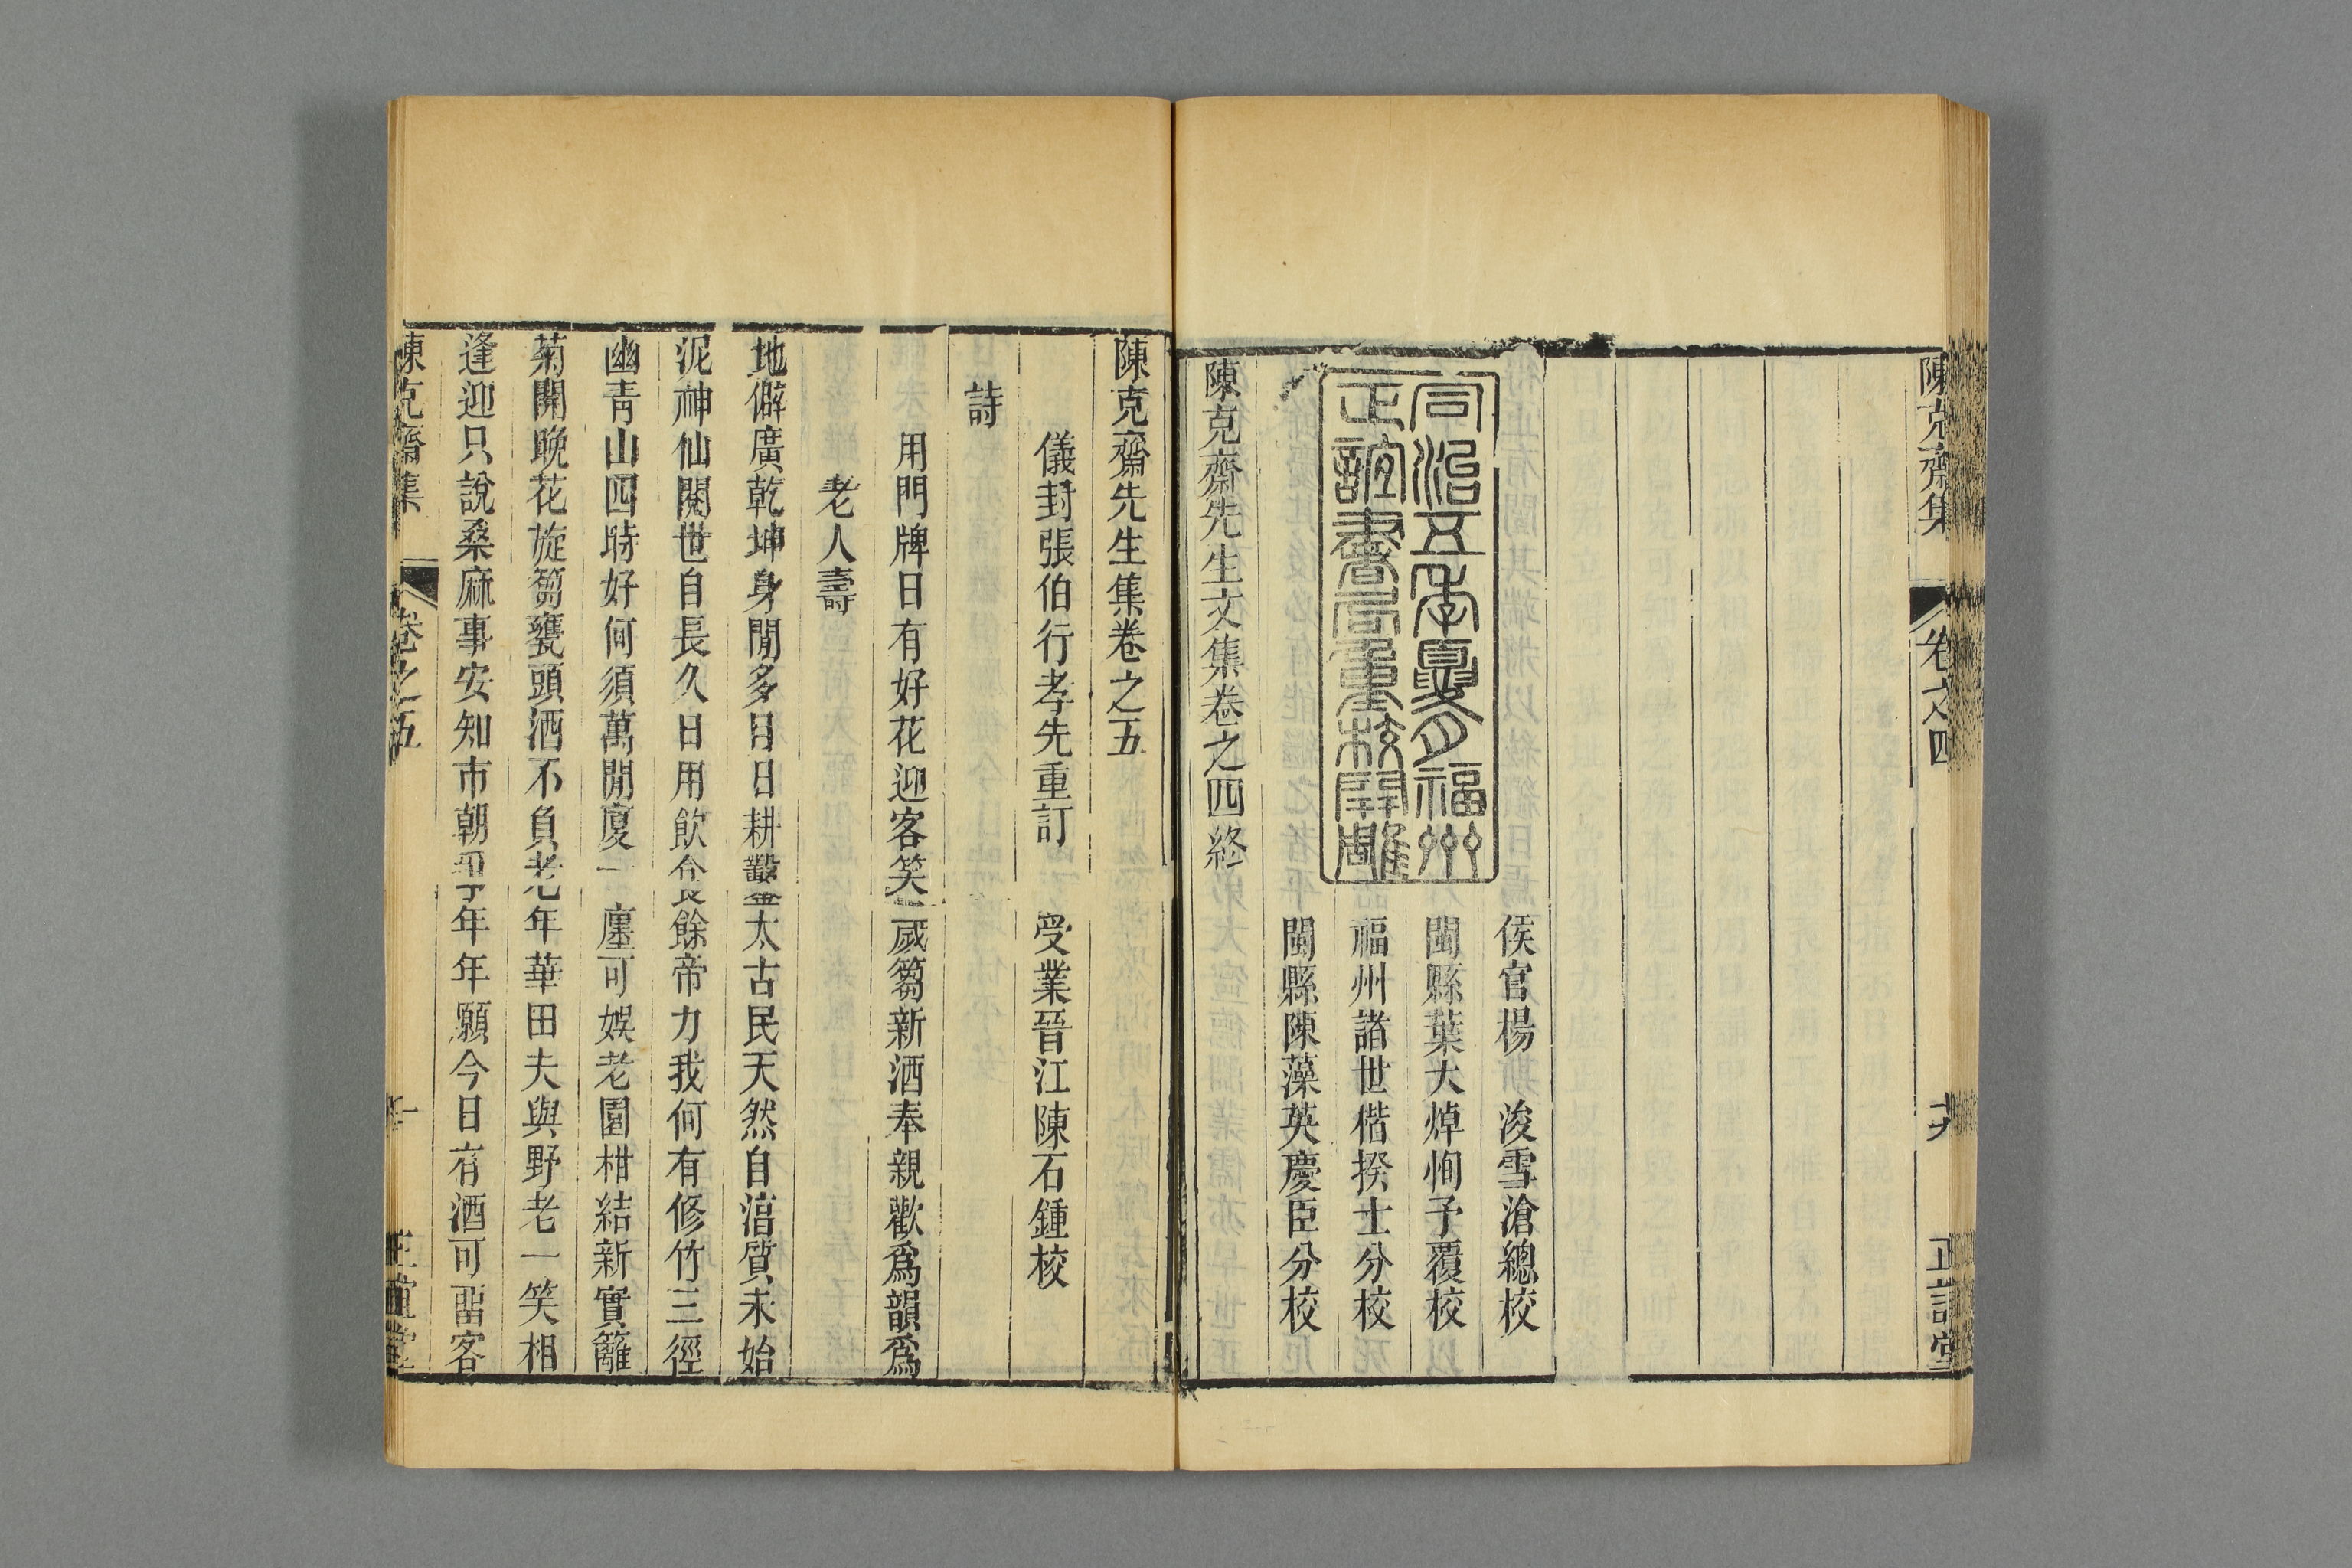 陳克齋集 卷之四 十六 正誼堂
同治五年夏月福州
正誼書局重校開雕
侯官楊 浚雪滄總校
閩縣葉大焯恂予覆校
福州諸世楷揆士分校
閩縣陳藻英慶臣分校
陳克齋先生文集卷之四終
陳克齋先生集卷之五
儀封張伯行孝先重訂 受業晉江陳石鍾校
詩
用門牌日有好花迎客笑 歲篘新酒奉親歡爲韻爲
老人壽
地僻廣乾坤身閒多日日耕鑿 太古民天然自湻質未始
泥神仙閱世自長久日用飲食餘帝力我何有修竹三徑
幽青山四時好何須萬閒廈一廛可娛老園柑結新實籬
菊開晚花旋篘甕頭酒不負老年華田夫與野老一笑相
逢迎只說桑麻事安知市朝 年年願今日有酒可畱客
陳克齋集 卷之五 一 正誼堂